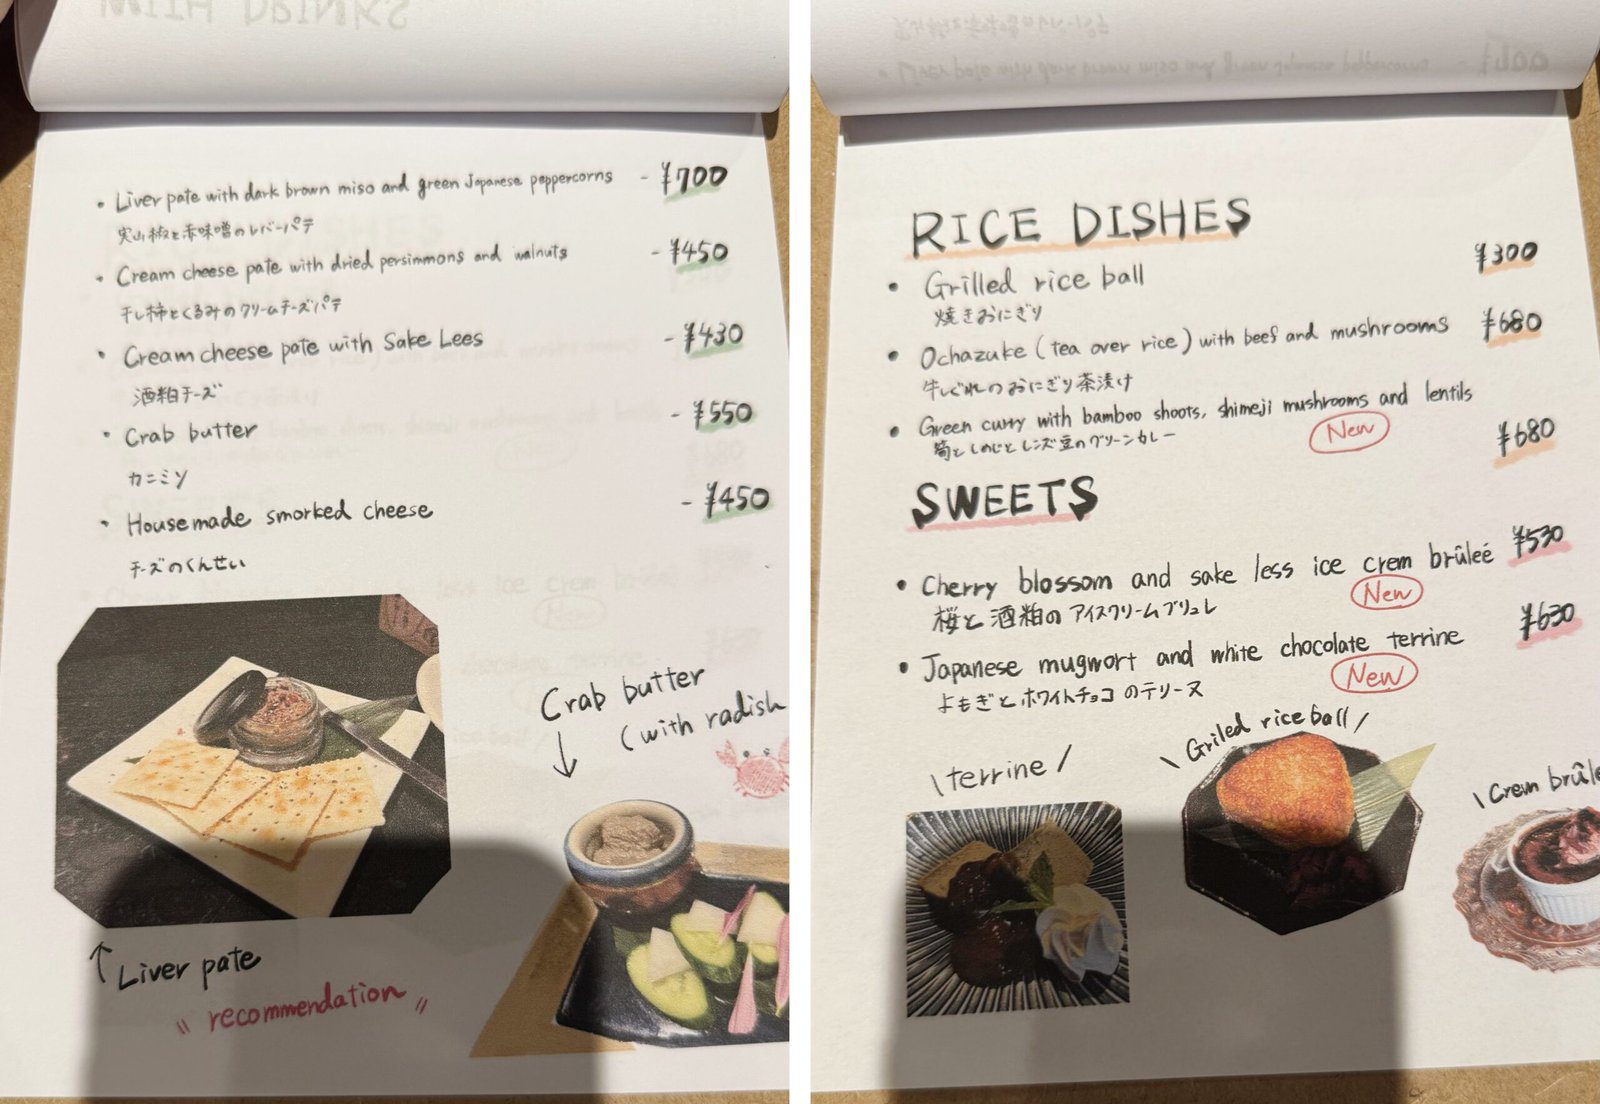 WITH DRINKS
• Liver pate with dark brown miso and green Japanese peppercorns - ¥700
実山椒と赤味噌のレバーパテ
• Cream cheese pate with dried persimmons and walnuts - ¥450
干し柿とくるみのクリームチーズパテ
• Cream cheese pate with Sake Lees - ¥430
酒粕チーズ
• Crab butter - ¥550
カニミソ
• Housemade smorked cheese - ¥450
チーズのくんせい
Crab butter
(with radish
↓
↑ Liver pate
"recommendation"
RICE DISHES
• Grilled rice ball ¥300
焼きおにぎり
• Ochazuke (tea over rice) with beef and mushrooms ¥680
牛しぐれのおにぎり茶漬け
• Green curry with bamboo shoots, shimeji mushrooms and lentils
筍としめじとレンズ豆のグリーンカレー New ¥680
SWEETS
• Cherry blossom and sake less ice crem brûleé ¥530
桜と酒粕のアイスクリームブリュレ New
• Japanese mugwort and white chocolate terrine ¥630
よもぎとホワイトチョコのテリーヌ New
\ terrine /
\ Griled rice ball /
\ Crem brûle